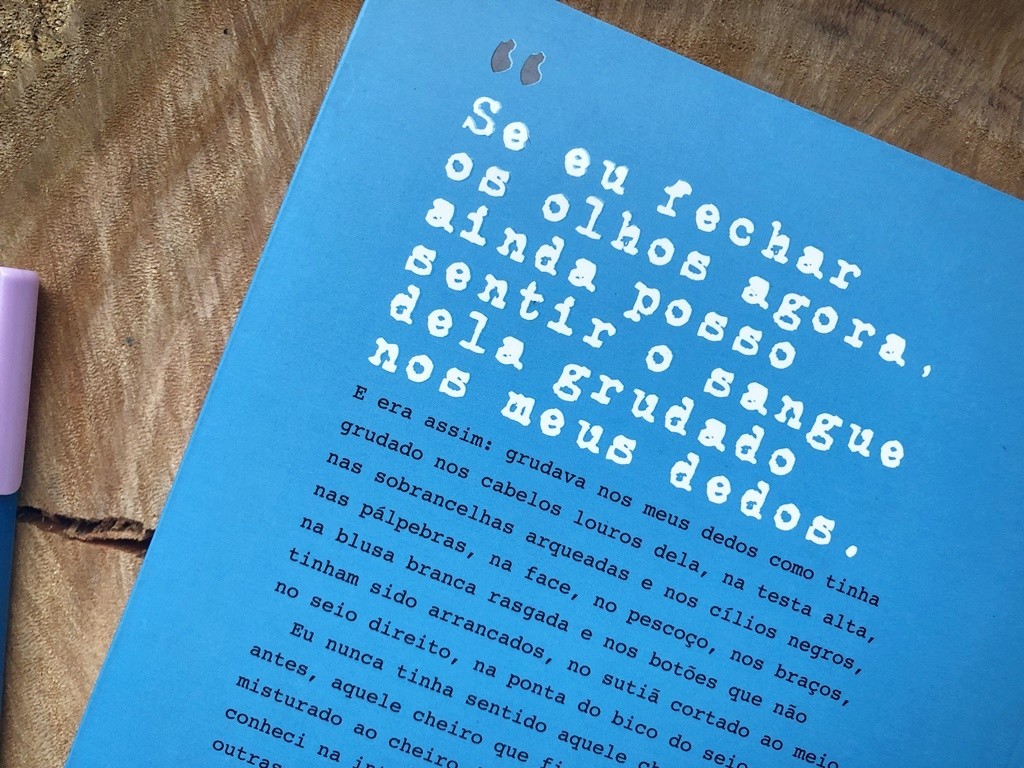 “
Se eu fechar
os olhos agora,
ainda posso
sentir o sangue
dela grudado
nos meus dedos.
E era assim: grudava nos meus dedos como tinha
grudado nos cabelos louros dela, na testa alta,
nas sobrancelhas arqueadas e nos cílios negros,
nas pálpebras, na face, no pescoço, nos braços,
na blusa branca rasgada e nos botões que não
tinham sido arrancados, no sutiã cortado ao meio,
no seio direito, na ponta do bico do seio
Eu nunca tinha sentido aquele
antes, aquele cheiro que
misturado ao cheiro
conheci na
outras